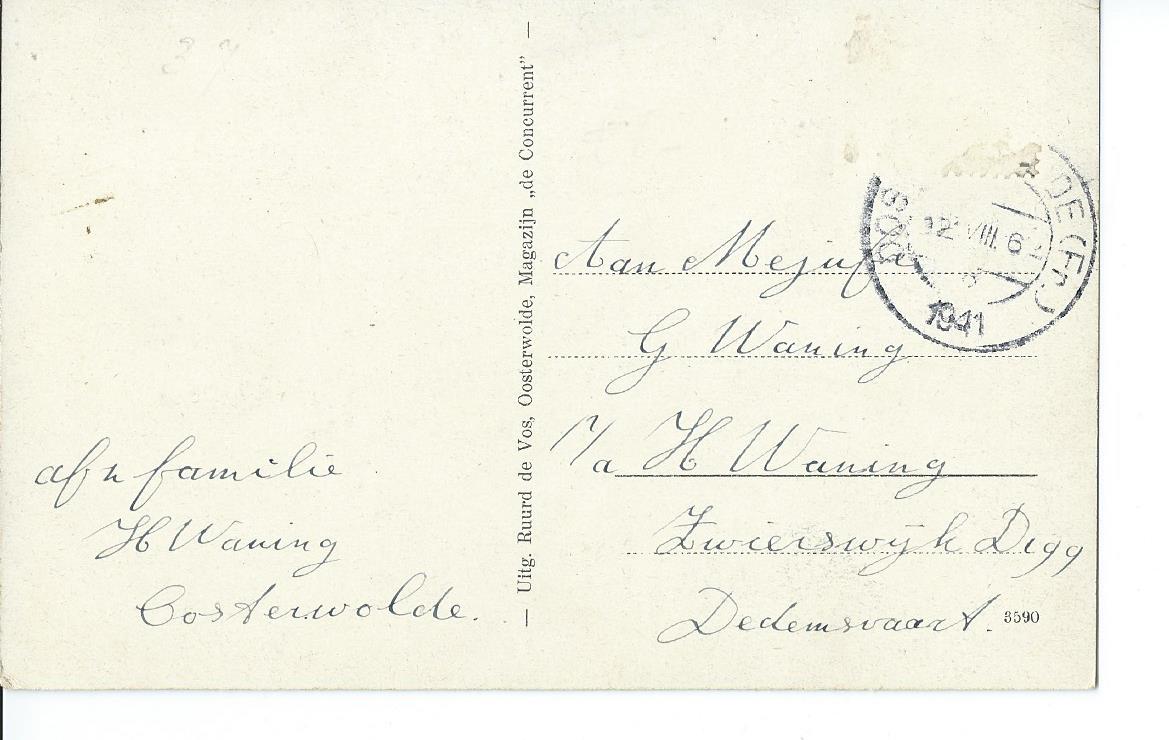 afz familie
H Waning
Oosterwolde.
— Uitg. Ruurd de Vos, Oosterwolde, Magazijn „de Concurrent” —
Aan Mejufr
G Waning
p/a H Waning
Zwierswijk D199
Dedemsvaart.
3590
OOS DE (Fr.)
12 VIII 6
1941